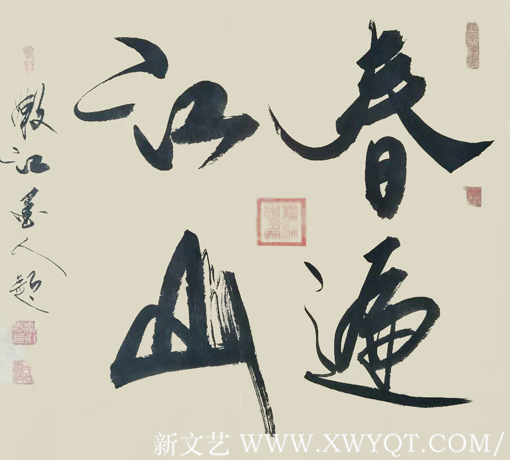 春遍
江山
墨人题
新文艺 WWW.XWYQT.COM